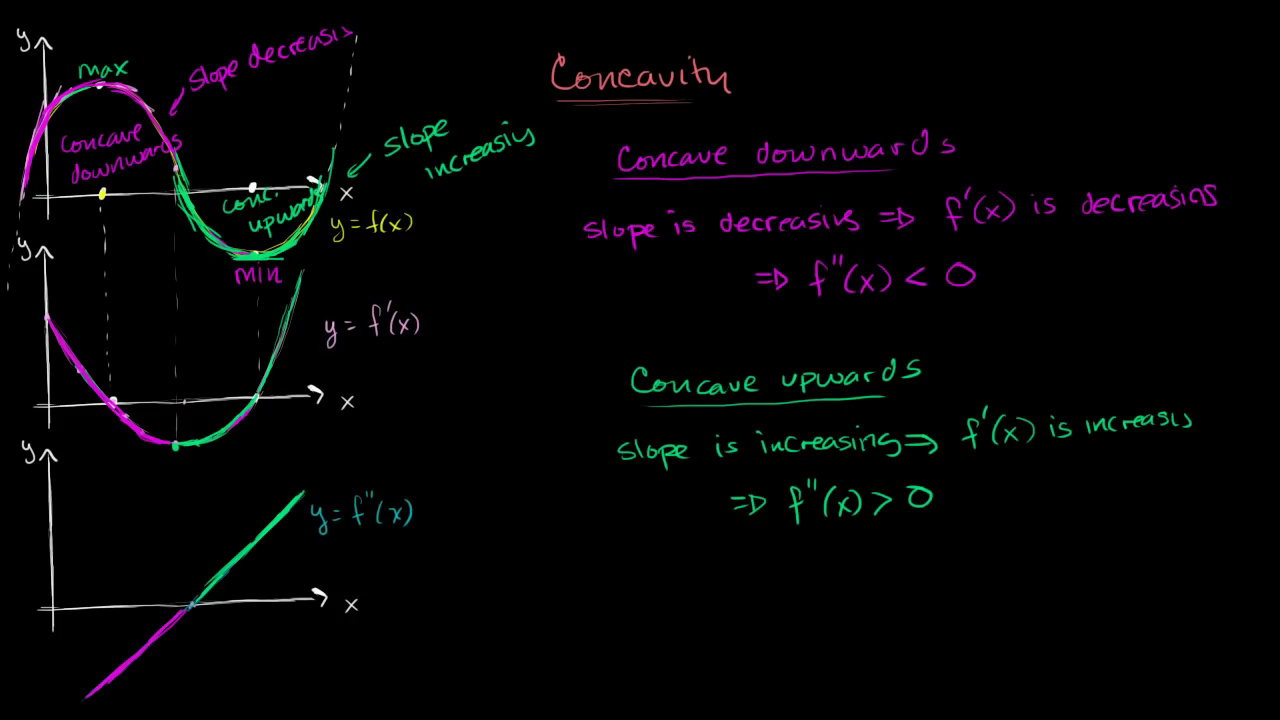 y
max
slope decreasis
concave
downwards
slope
increasing
conc.
upwards
x
y = f(x)
min
y
y = f'(x)
x
y
y = f"(x)
x
Concavity
Concave downwards
slope is decreasing ⇒ f'(x) is decreasing
⇒ f"(x) < 0
Concave upwards
slope is increasing ⇒ f'(x) is increasis
⇒ f"(x) > 0